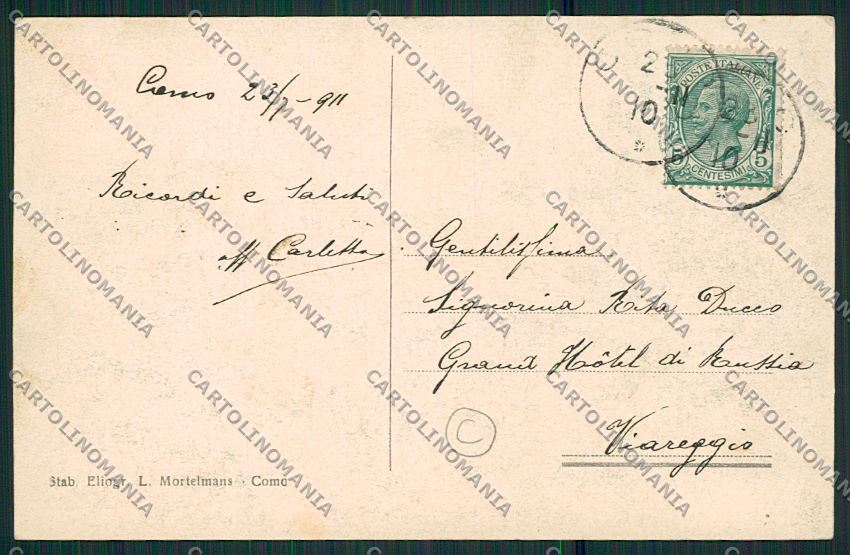 Como 23/7-911
Ricordi e saluti
aff Carletta
Gentilissima
Signorina Rita Ducco
Grand Hôtel di Russia
Viareggio
C
POSTE ITALIANE
5 5
CENTESIMI
10
10
Stab. Eliogr. L. Mortelmans - Como
CARTOLINOMANIA